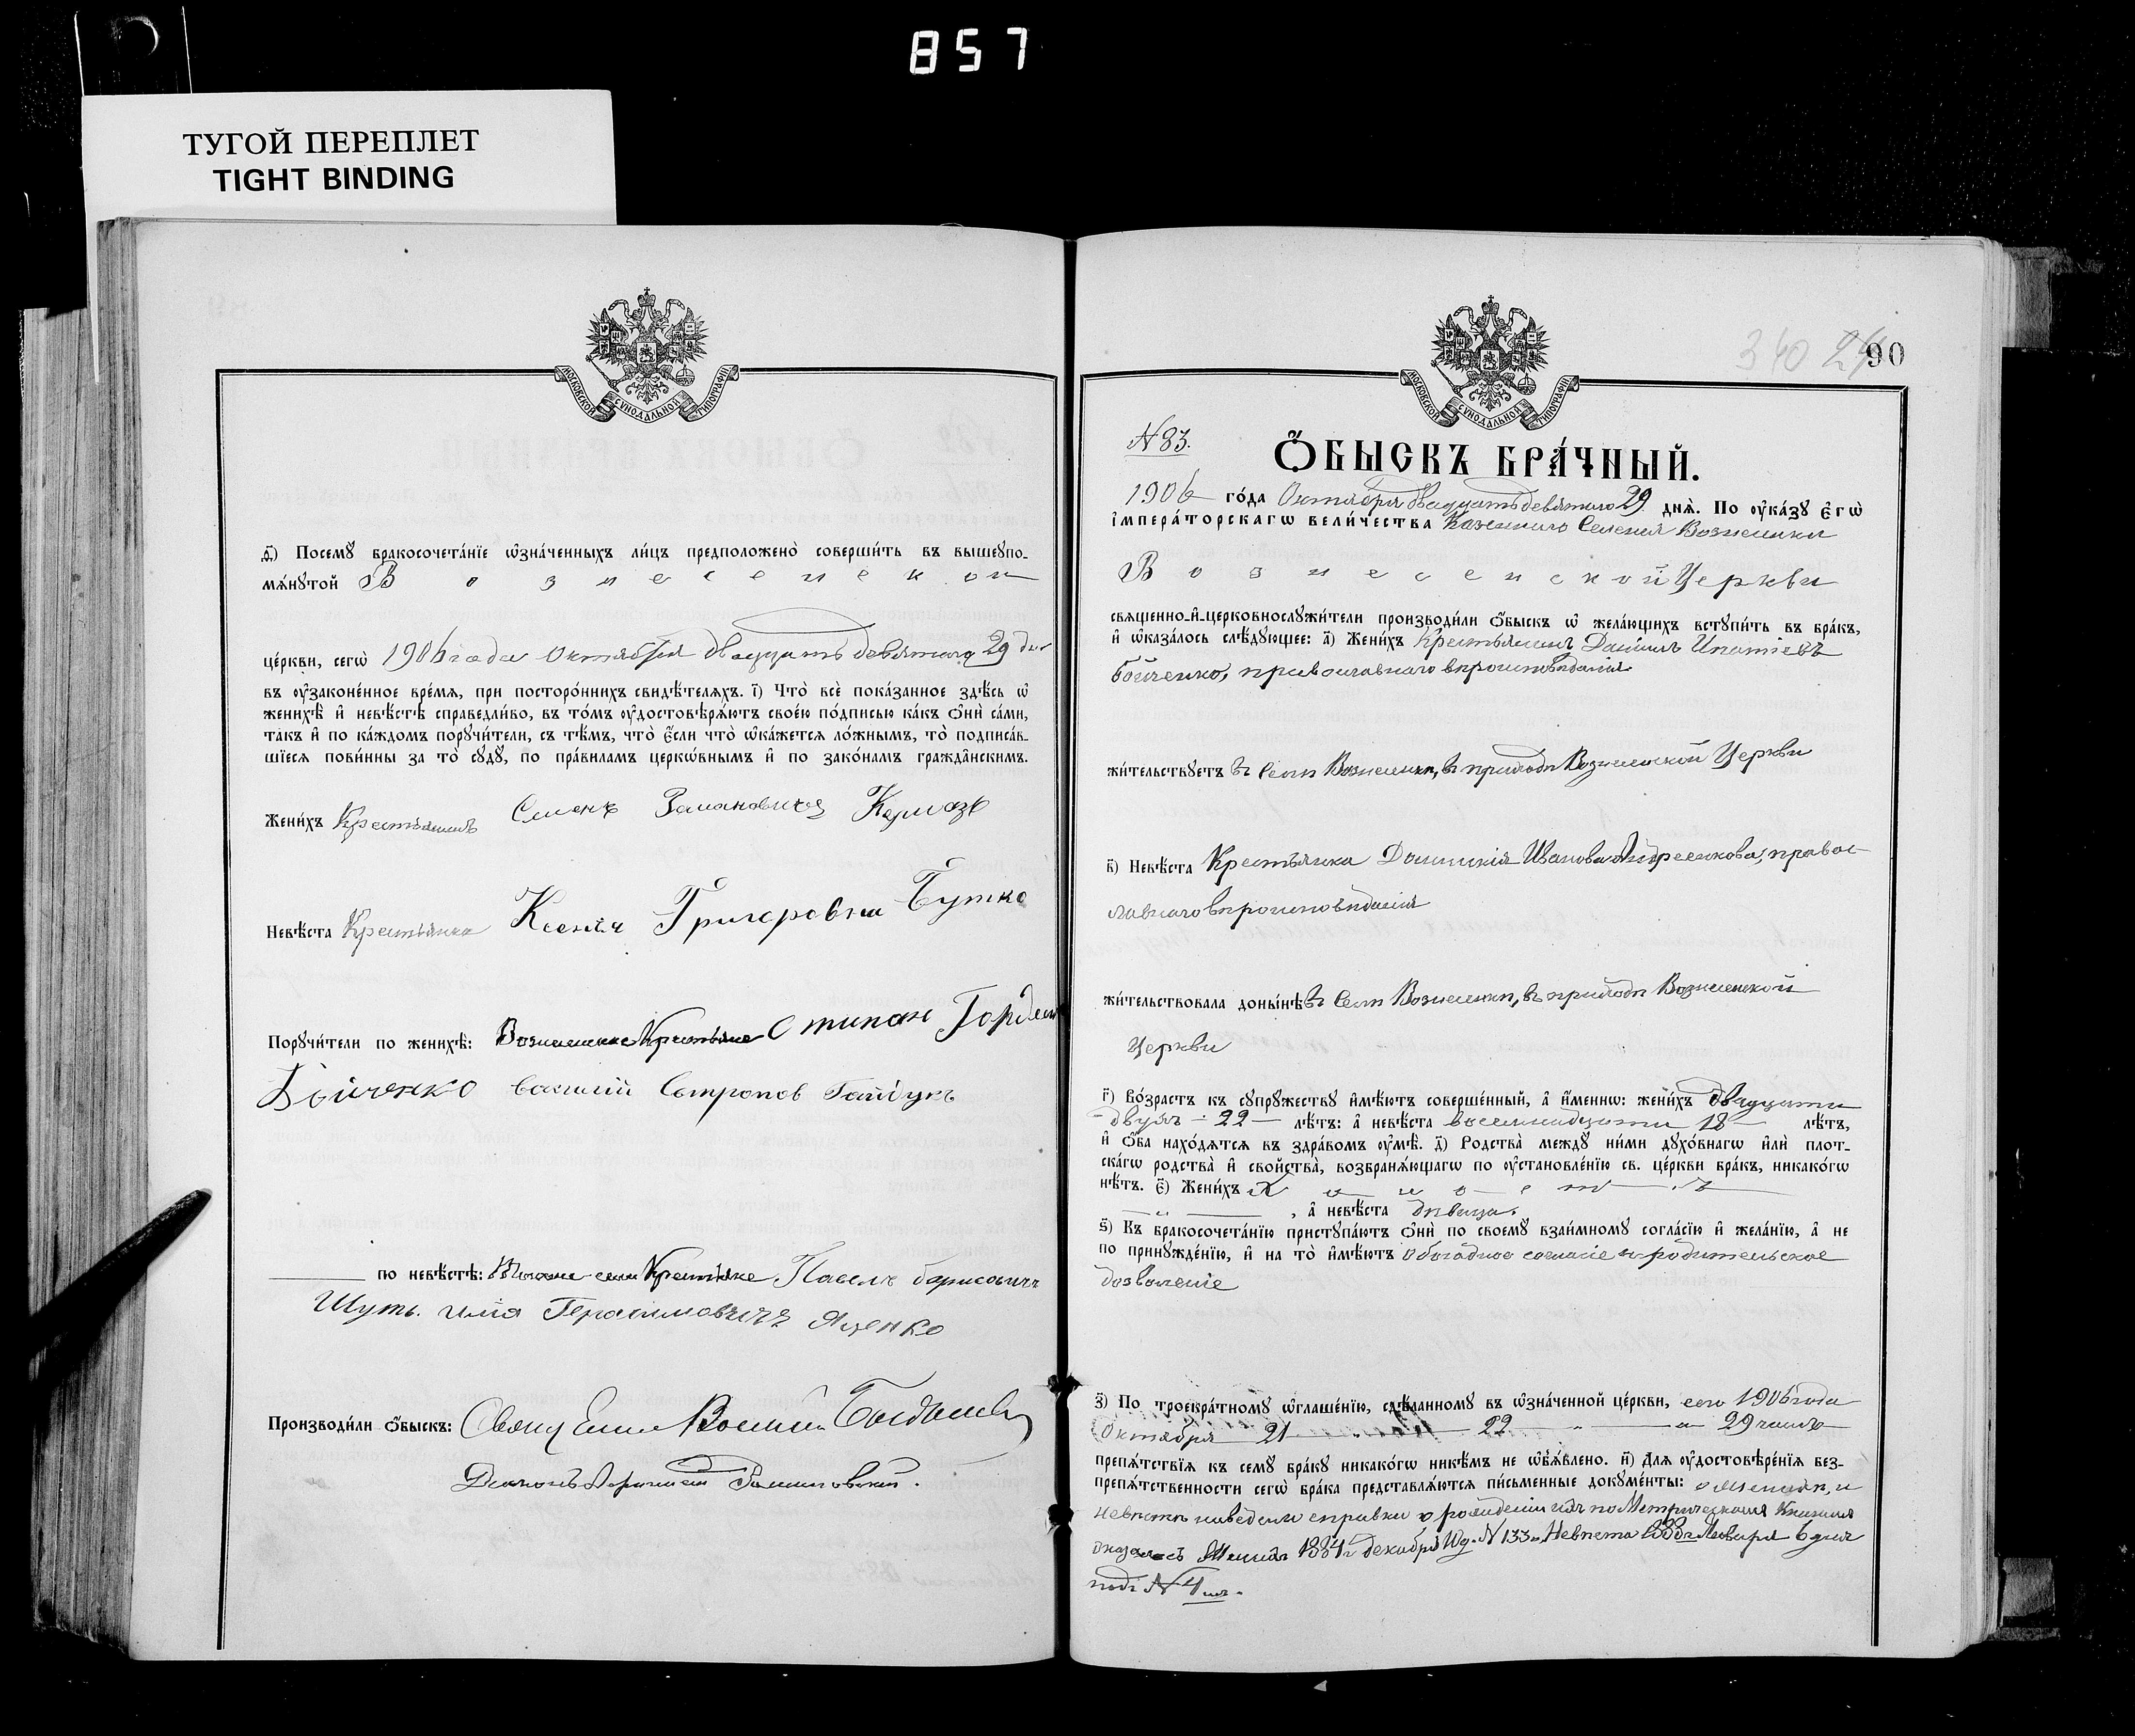 857
ТУГОЙ ПЕРЕПЛЕТ
TIGHT BINDING
МОСКОВСКОЙ СУНОДАЛЬНОЙ ТИПОГРАФІИ
д҃і) Посемꙋ̀ бракосочета́нїе ѡ҆зна́ченныхъ ли́цъ предположено̀ соверши́ть въ вышеꙋпо-
мѧ́нꙋтой Вознесенской
це́ркви, сегѡ̀ 1906 года Октября двадцать девятаго 29 дня
въ ᲂу҆законе́нное вре́мѧ, при посторо́ннихъ свидѣ́телѧхъ. і҃) Что̀ всѐ пока́занное здѣ́сь ѡ҆
женихѣ̀ и҆ невѣ́стѣ справедли́во, въ то́мъ ᲂу҆достовѣрѧ́ютъ свое́ю по́дписью ка́къ ѻ҆нѝ са́ми,
та́къ и҆ по ка́ждомъ порꙋчи́тели, съ тѣ́мъ, что̀ є҆́сли что̀ ѡ҆ка́жетсѧ ло́жнымъ, то̀ подписа́в-
шїесѧ пови́нны за то̀ сꙋдꙋ̀, по пра́виламъ церкѡ́внымъ и҆ по зако́намъ гражда̂нскимъ.
Жени́хъ Крестьянинъ Семенъ
Невѣ́ста Крестьянка Ксенія Григоровна Бутко
Порꙋчи́тели по женихѣ̀: Крестьяне Стипан Гордеев
Бойченко василій Гайдукъ
по невѣ́стѣ: Крестьяне Павелъ борисовичъ
Шуть. илия Герасимовичъ Яценко
Производи́ли ѻ҆́быскъ: Священникъ
Діаконъ
МОСКОВСКОЙ СУНОДАЛЬНОЙ ТИПОГРАФІИ
340 24
90
N 83.
Ѻ҆БЫСКЪ БРА́ЧНЫЙ.
1906 го́да Октября двадцать девятаго 29 днѧ̀. По ᲂу҆ка́зꙋ є҆гѡ̀
і҆мпера́торскагѡ вели́чества Казеннаго Селенія Вознесенки
Вознесенской Церкви
свѧщенно-и҆-церковнослꙋжи́тели производи́ли ѻ҆́быскъ ѡ҆ жела́ющихъ встꙋпи́ть въ бра́къ,
и҆ ѡ҆каза́лось слѣ́дꙋющее: а҃) Жени́хъ Крестьянинъ Даніилъ Ипатіевъ
бойченко, православнаго вѣроисповѣданія
жи́тельствꙋетъ въ Селѣ Вознесенкѣ, въ приходѣ Вознесенской Церкви
в҃) Невѣ́ста Крестьянка Домникія Иванова Андреенкова, правос-
лавнаго вѣроисповѣданія
жи́тельствовала доны́нѣ въ Селѣ Вознесенкѣ, въ приходѣ Вознесенской
Церкви
г҃) Во́зрастъ къ сꙋпрꙋжествꙋ и҆мѣ́ютъ соверше́нный, а҆ и҆́меннѡ: жени́хъ двадцати
двухъ - 22 - лѣ́тъ: а҆ невѣ́ста восемнадцати 18 - лѣ́тъ,
и҆ ѻ҆́ба нахо́дѧтсѧ въ здра́вомъ ᲂу҆мѣ̀. д҃) Родства̀ междꙋ̀ ни́ми дꙋхо́внагѡ и҆лѝ плот-
ска́гѡ родства̀ и҆ сво́йства, возбранѧ́ющагѡ по ᲂу҆становле́нїю св. це́ркви бра́къ, никако́гѡ
нѣ́тъ. є҃) Жени́хъ Холостъ
, а҆ невѣ́ста дѣвица.
ѕ҃) Къ бракосочета́нїю пристꙋпа́ютъ ѻ҆нѝ по своемꙋ̀ взаи́мномꙋ согла́сїю и҆ жела́нїю, а҆ не
по принꙋжде́нїю, и҆ на то̀ и҆мѣ́ютъ обоюдное согласіе и родительское
дозволеніе
з҃) По троекра́тномꙋ ѡ҆глаше́нїю, сдѣ́ланномꙋ въ ѡ҆зна́ченной це́ркви, сего 1906 года
Октября 21 — 22 — и 29 чиселъ
препѧ́тствїѧ къ семꙋ̀ бра́кꙋ никако́гѡ никѣ́мъ не ѡ҆б̾ѧ́влено. и҃) Длѧ ᲂу҆достовѣре́нїѧ без-
препѧ́тственности сегѡ̀ бра́ка представлѧ́ютсѧ пи́сьменные докꙋме́нты: о Женихѣ, и
невѣстѣ наведены справки о рожденіи ихъ по Метрическимъ Книгамъ
оказалось Женихъ 1884 г. декабря N 133 Невѣста Января 6 дня
подъ N 4